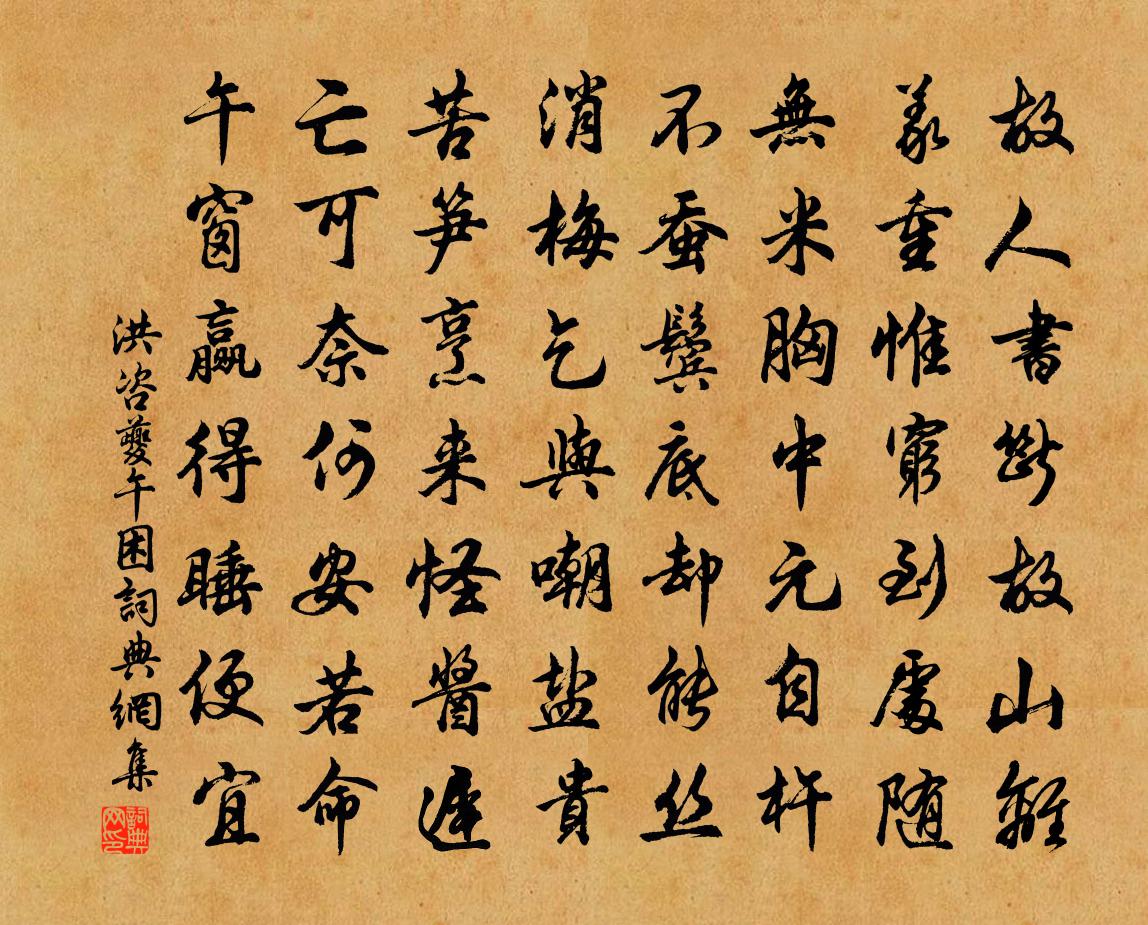 故人書斷故山離
義重惟窮到處随
無米胸中元自杵
不蚕鬢底却能丝
消梅乞與嘲盐貴
苦笋烹来怪醬遲
亡可奈何安若命
午窗贏得睡便宜
洪咨夔午困詞典網集
詞典网印